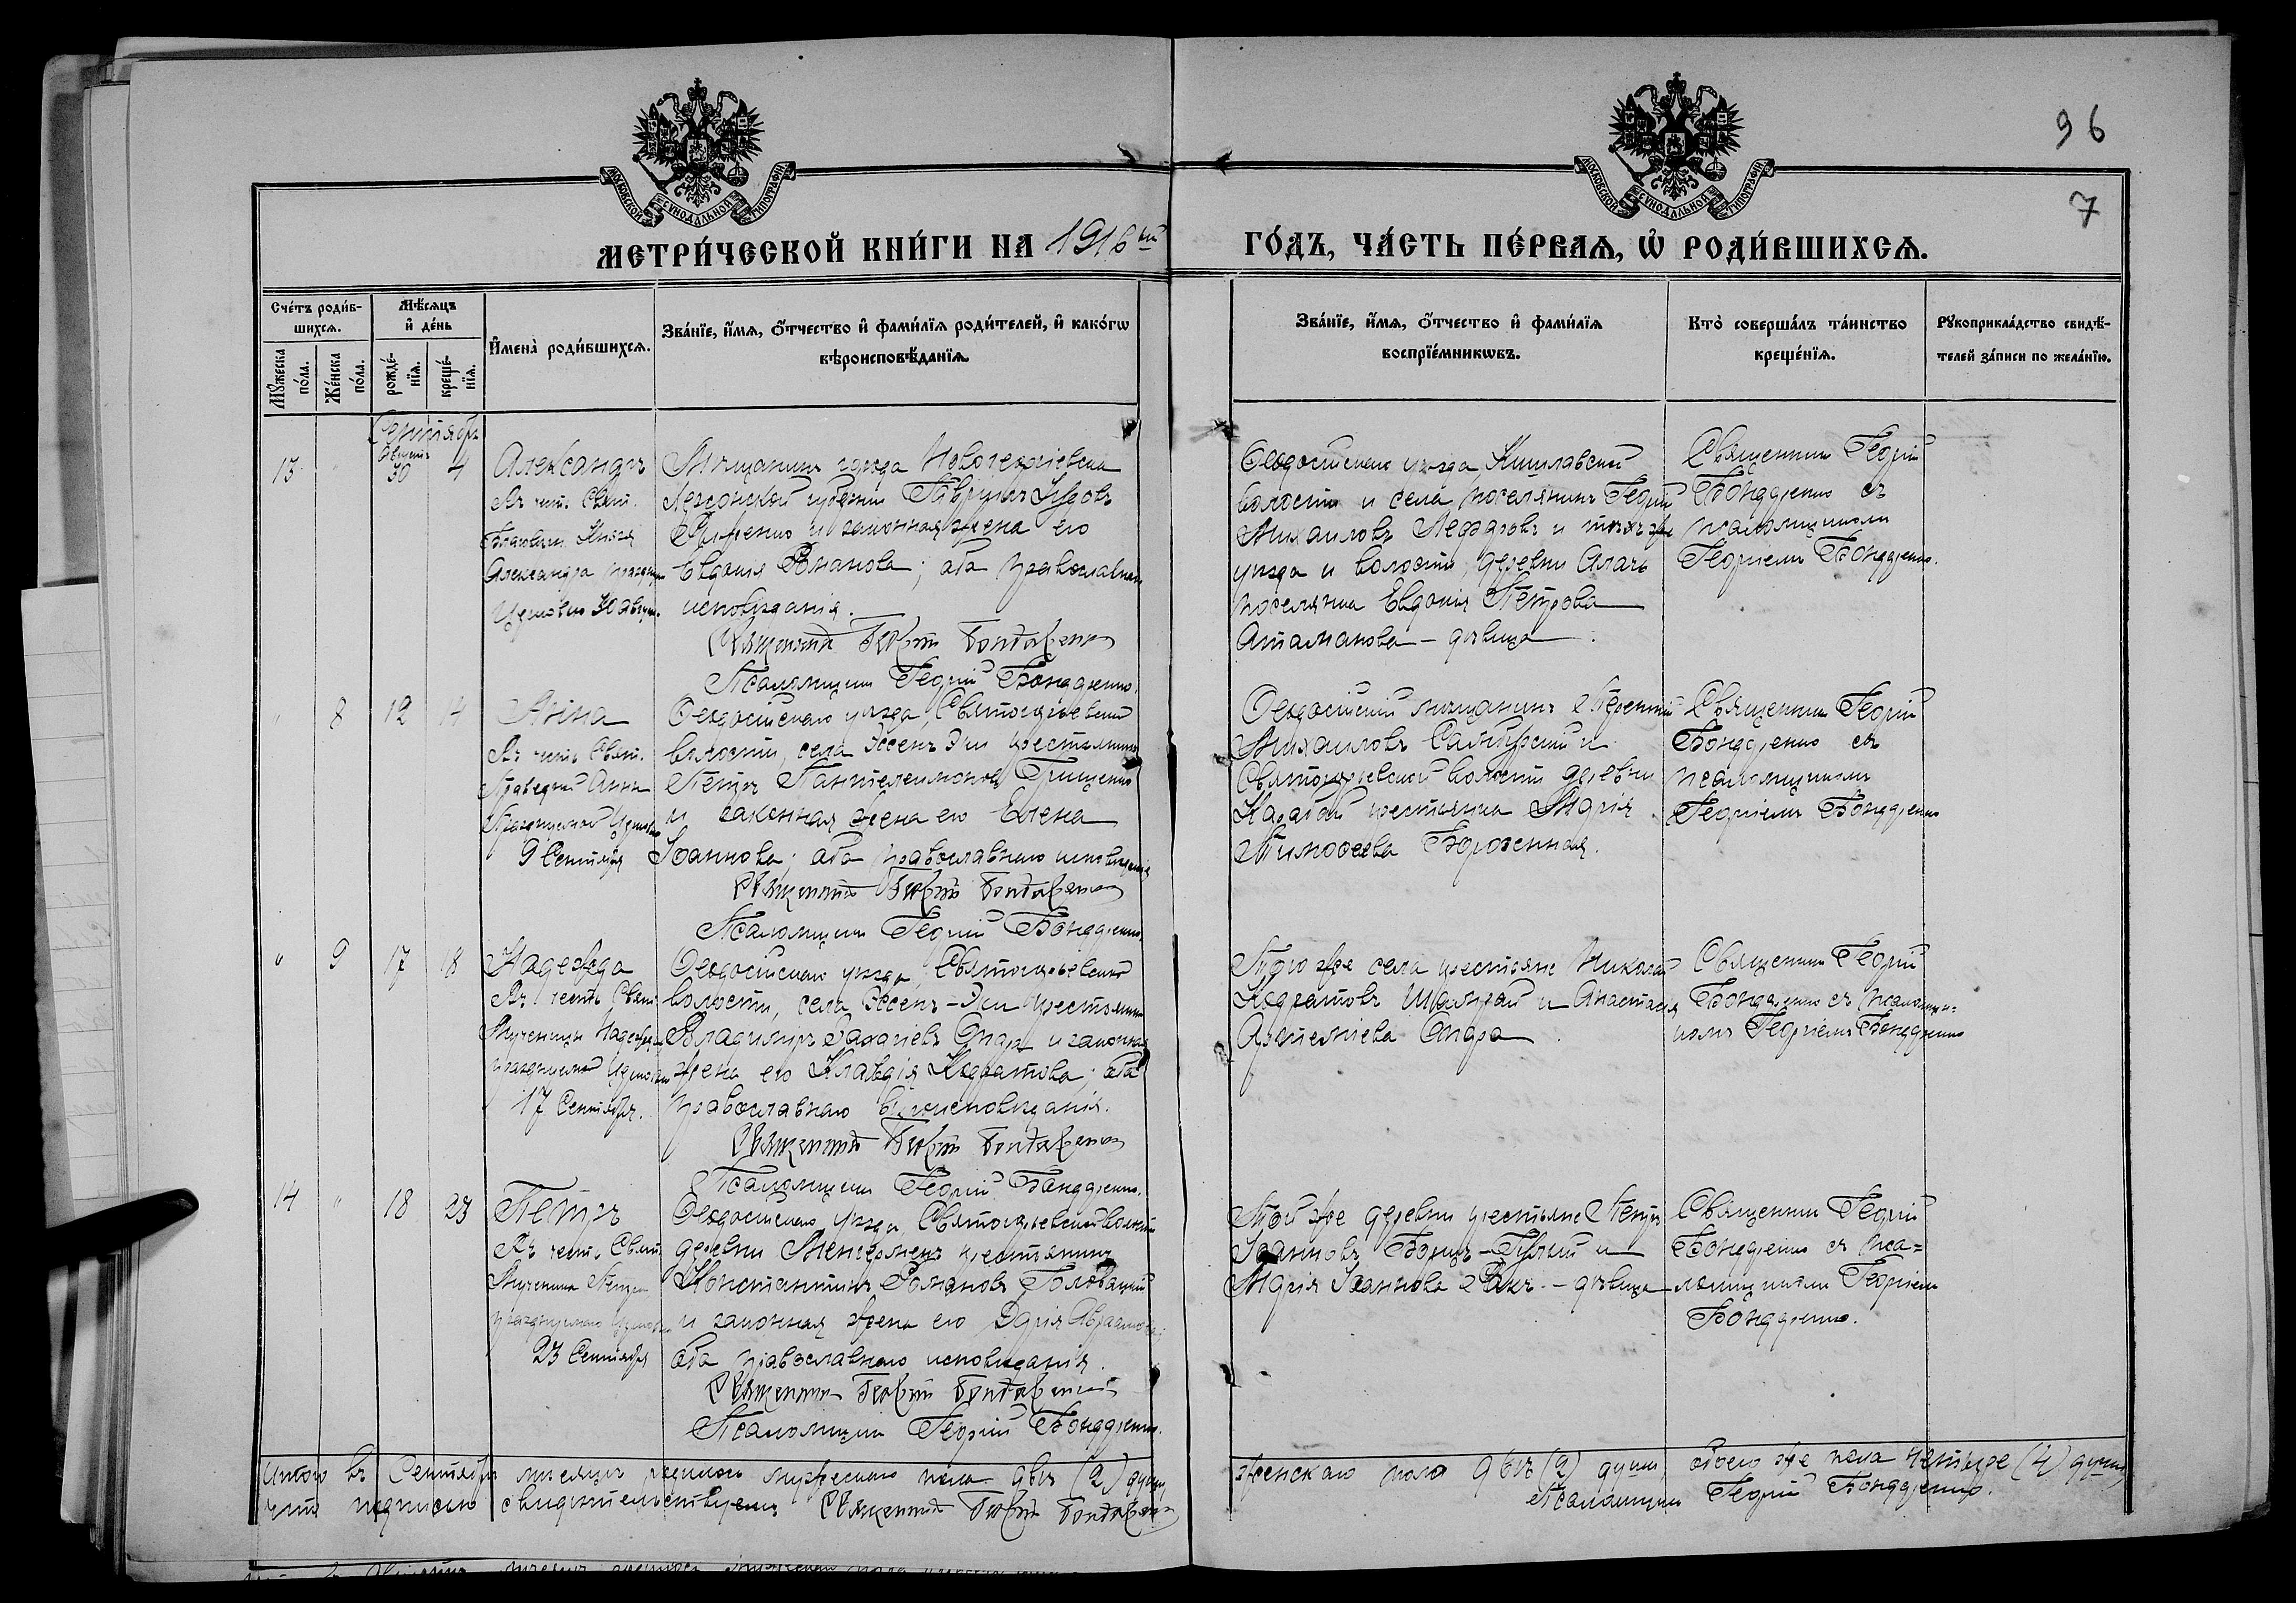 96
7
МОСКОВСКОЙ СѴНОДАЛЬНОЙ ТИПОГРАФІИ
МОСКОВСКОЙ СѴНОДАЛЬНОЙ ТИПОГРАФІИ
МЕТРИ́ЧЕСКОЙ КНИ́ГИ НА 1916ый ГО́ДЪ, ЧА́СТЬ ПЕ́РВАѦ, Ѡ҆ РОДИ́ВШИХСѦ.
Сче́тъ роди́в-
шихсѧ.
Мꙋ́жеска по́ла.
Же́нска по́ла.
Мѣ́сѧцъ
и҆ де́нь
рожде́-
нїѧ.
креще́-
нїѧ.
И҆мена̀ роди́вшихсѧ.
Зва́нїе, и҆́мѧ, ѻ҆́тчество и҆ фами́лїѧ роди́телей, и҆ како́гѡ
вѣроисповѣ́данїѧ.
Зва́нїе, и҆́мѧ, ѻ҆́тчество и҆ фами́лїѧ
воспрїе́мникѡвъ.
Кто̀ соверша́лъ та́инство
креще́нїѧ.
Рꙋкоприкла́дство свидѣ́-
телей за́писи по жела́нїю.
Сентябрь
13 Августъ 30 4
Александръ
Въ честь Свят.
Благовѣрн. Князя
Александра празднуе
Церковью 30 август.
Мѣщанинъ города Новогеоргіевска
Херсонской губерніи Гавріилъ
и законная жена его
Евдокія Романова; оба православнаго
исповѣданія.
Священникъ Георгій Бондаренко
Псаломщикъ Георгій Бондаренко.
Ѳеодосійскаго уѣзда Кишлавской
волости и села поселянинъ Георгій
Михаиловъ и того же
уѣзда и волости, деревни
поселянка Евдокія Петрова
Атаманова - дѣвица
Священникъ Георгій
Бондаренко съ
псаломщикомъ
Георгіемъ Бондаренко.
" 8 12 14
Анна
Въ честь Свят.
Праведной Анны
Празднуемой Церковью
9 Сентября
Ѳеодосійскаго уѣзда, Святогорьевской
волости, села Эссенъ Эки крестьянинъ
Петръ Пантелеимоновъ Грищенко
и законная жена его Елена
Іоаннова; оба православнаго исповѣданія
Священникъ Георгій Бондаренко
Псаломщикъ Георгій Бондаренко.
Ѳеодосійскій мѣщанинъ Терентій
Михаиловъ и
волости деревни
крестьянка Марія
Тимоѳеева
Священникъ Георгій
Бондаренко съ
псаломщикомъ
Георгіемъ Бондаренко
" 9 17 18
Надежда
Въ честь Свят.
Мученицы Надежды
празднуемой Церковью
17 Сентября.
Ѳеодосійскаго уѣзда, Святогорьевской
волости, села Эссенъ-Эки крестьянинъ
Владимиръ Захаріевъ и законная
жена его Клавдія Кодратова; оба
православнаго вѣроисповѣданія.
Священникъ Георгій Бондаренко
Псаломщикъ Георгій Бондаренко.
Того же села крестьяне Николай
Кодратовъ и Анастасія
Артеміева
Священникъ Георгій
Бондаренко съ псаломщи-
комъ Георгіемъ Бондаренко
14 " 18 23
Петръ
Въ честь Свят.
Мученика Петра
празднуемаго Церковью
23 Сентября
Ѳеодосійскаго уѣзда Святогорьевской волости
деревни крестьянинъ
Константинъ Романовъ Головацкій
и законная жена его Дарія Авраамова;
оба православнаго исповѣданія.
Священникъ Георгій Бондаренко
Псаломщикъ Георгій Бондаренко.
Той же деревни крестьяне Петръ
Іоанновъ и
Марія Іоаннова - дѣвица
Священникъ Георгій
Бондаренко съ пса-
ломщикомъ Георгіемъ
Бондаренко.
Итого въ Сентябрѣ мѣсяцѣ родилось мужескаго пола двѣ (2) души, женскаго пола двѣ (2) души, обоего же пола четыре (4) души,
что подписью свидѣтельствуемъ Священникъ Георгій Бондаренко Псаломщикъ Георгій Бондаренко.